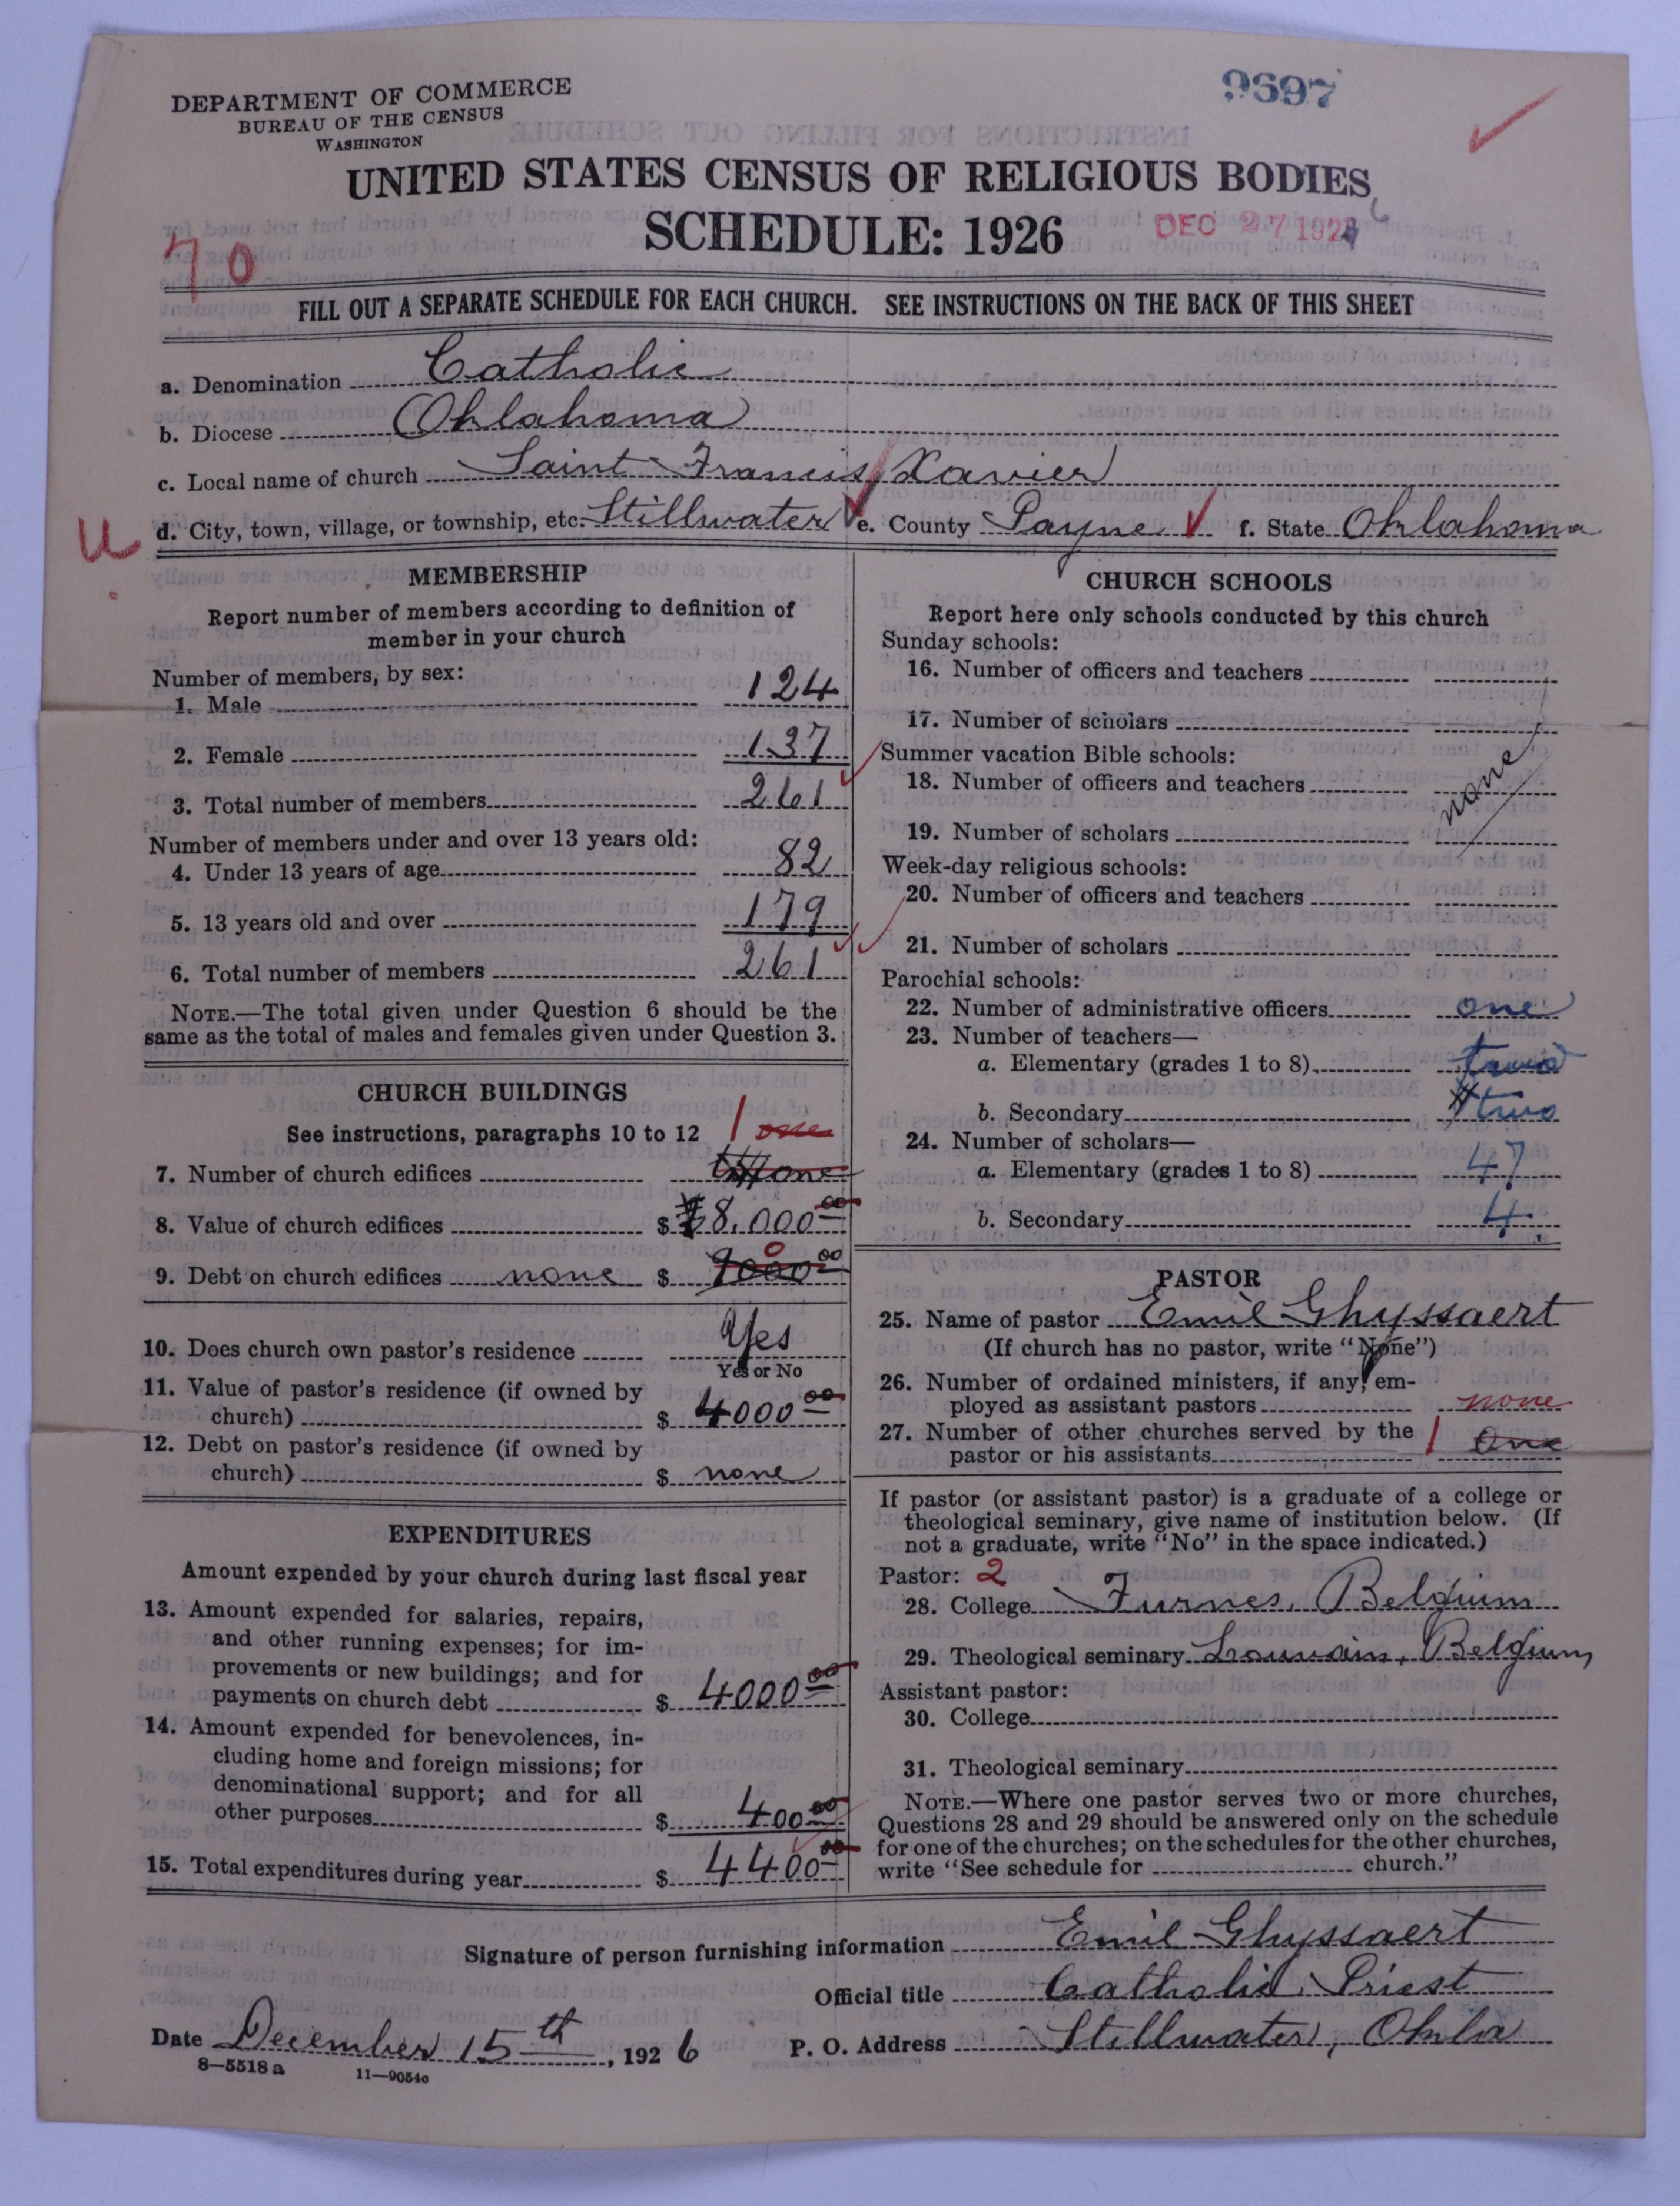 DEPARTMENT OF COMMERCE
BUREAU OF THE CENSUS
WASHINGTON
9697
UNITED STATES CENSUS OF RELIGIOUS BODIES
SCHEDULE: 1926
DEC 27 192 6
70
FILL OUT A SEPARATE SCHEDULE FOR EACH CHURCH. SEE INSTRUCTIONS ON THE BACK OF THIS SHEET
a. Denomination Catholic
b. Diocese Oklahoma
c. Local name of church Saint Francis Xavier
d. City, town, village, or township, etc. Stillwater e. County Payne f. State Oklahoma
U
MEMBERSHIP
Report number of members according to definition of
member in your church
Number of members, by sex:
1. Male 124
2. Female 137
3. Total number of members 261
Number of members under and over 13 years old:
4. Under 13 years of age 82
5. 13 years old and over 179
6. Total number of members 261
NOTE.—The total given under Question 6 should be the
same as the total of males and females given under Question 3.
CHURCH BUILDINGS
See instructions, paragraphs 10 to 12 1 one
7. Number of church edifices one
8. Value of church edifices $ 8,000 00
9. Debt on church edifices none $ 0
10. Does church own pastor's residence Yes
Yes or No
11. Value of pastor's residence (if owned by
church) $ 4000 00
12. Debt on pastor's residence (if owned by
church) $ none
EXPENDITURES
Amount expended by your church during last fiscal year
13. Amount expended for salaries, repairs,
and other running expenses; for im-
provements or new buildings; and for
payments on church debt $ 4000 00
14. Amount expended for benevolences, in-
cluding home and foreign missions; for
denominational support; and for all
other purposes $ 400 00
15. Total expenditures during year $ 4400 00
CHURCH SCHOOLS
Report here only schools conducted by this church
Sunday schools:
16. Number of officers and teachers
17. Number of scholars
Summer vacation Bible schools:
18. Number of officers and teachers
none
19. Number of scholars
Week-day religious schools:
20. Number of officers and teachers
21. Number of scholars
Parochial schools:
22. Number of administrative officers one
23. Number of teachers—
a. Elementary (grades 1 to 8) two
b. Secondary two
24. Number of scholars—
a. Elementary (grades 1 to 8) 47
b. Secondary 4
PASTOR
25. Name of pastor Emil Ghyssaert
(If church has no pastor, write "None")
26. Number of ordained ministers, if any, em-
ployed as assistant pastors none
27. Number of other churches served by the
pastor or his assistants 1 One
If pastor (or assistant pastor) is a graduate of a college or
theological seminary, give name of institution below. (If
not a graduate, write "No" in the space indicated.)
Pastor: 2
28. College Furnes, Belgium
29. Theological seminary Louvain, Belgium
Assistant pastor:
30. College
31. Theological seminary
NOTE.—Where one pastor serves two or more churches,
Questions 28 and 29 should be answered only on the schedule
for one of the churches; on the schedules for the other churches,
write "See schedule for church."
Signature of person furnishing information Emil Ghyssaert
Official title Catholic Priest
Date December 15th, 1926 P. O. Address Stillwater, Okla
8—5518 a 11—9054c